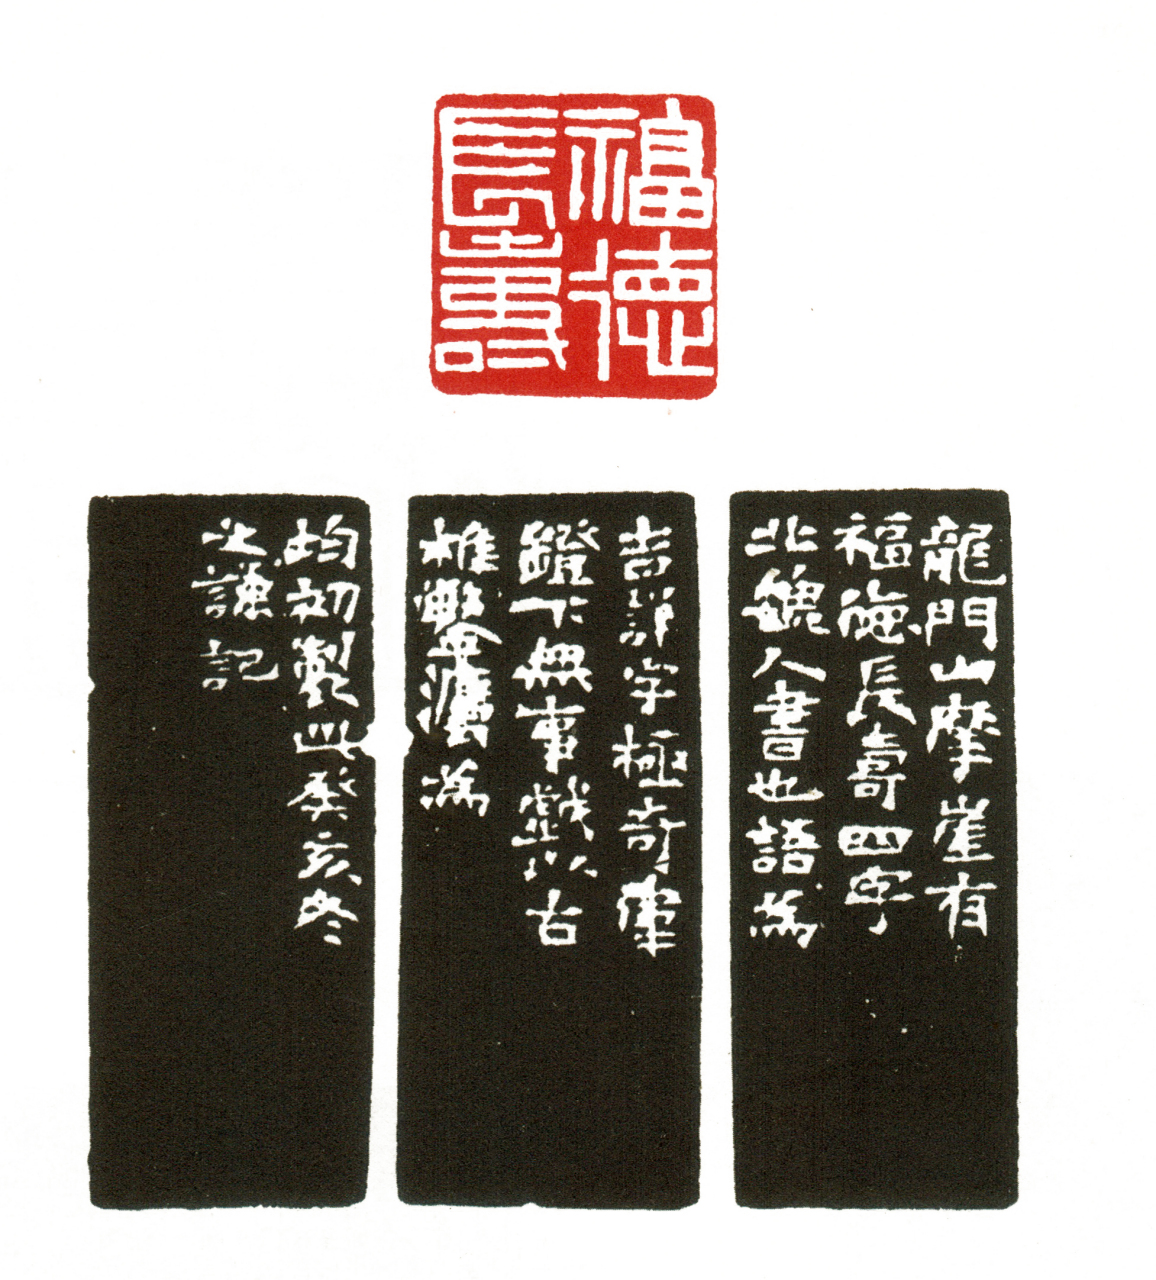 福德
長壽
龍門山摩崖有
福德長壽四字
北魏人書也語為
吉祥字極奇偉
鐙下無事戲以古
椎鑿灋為
均初製此癸亥冬
之謙記